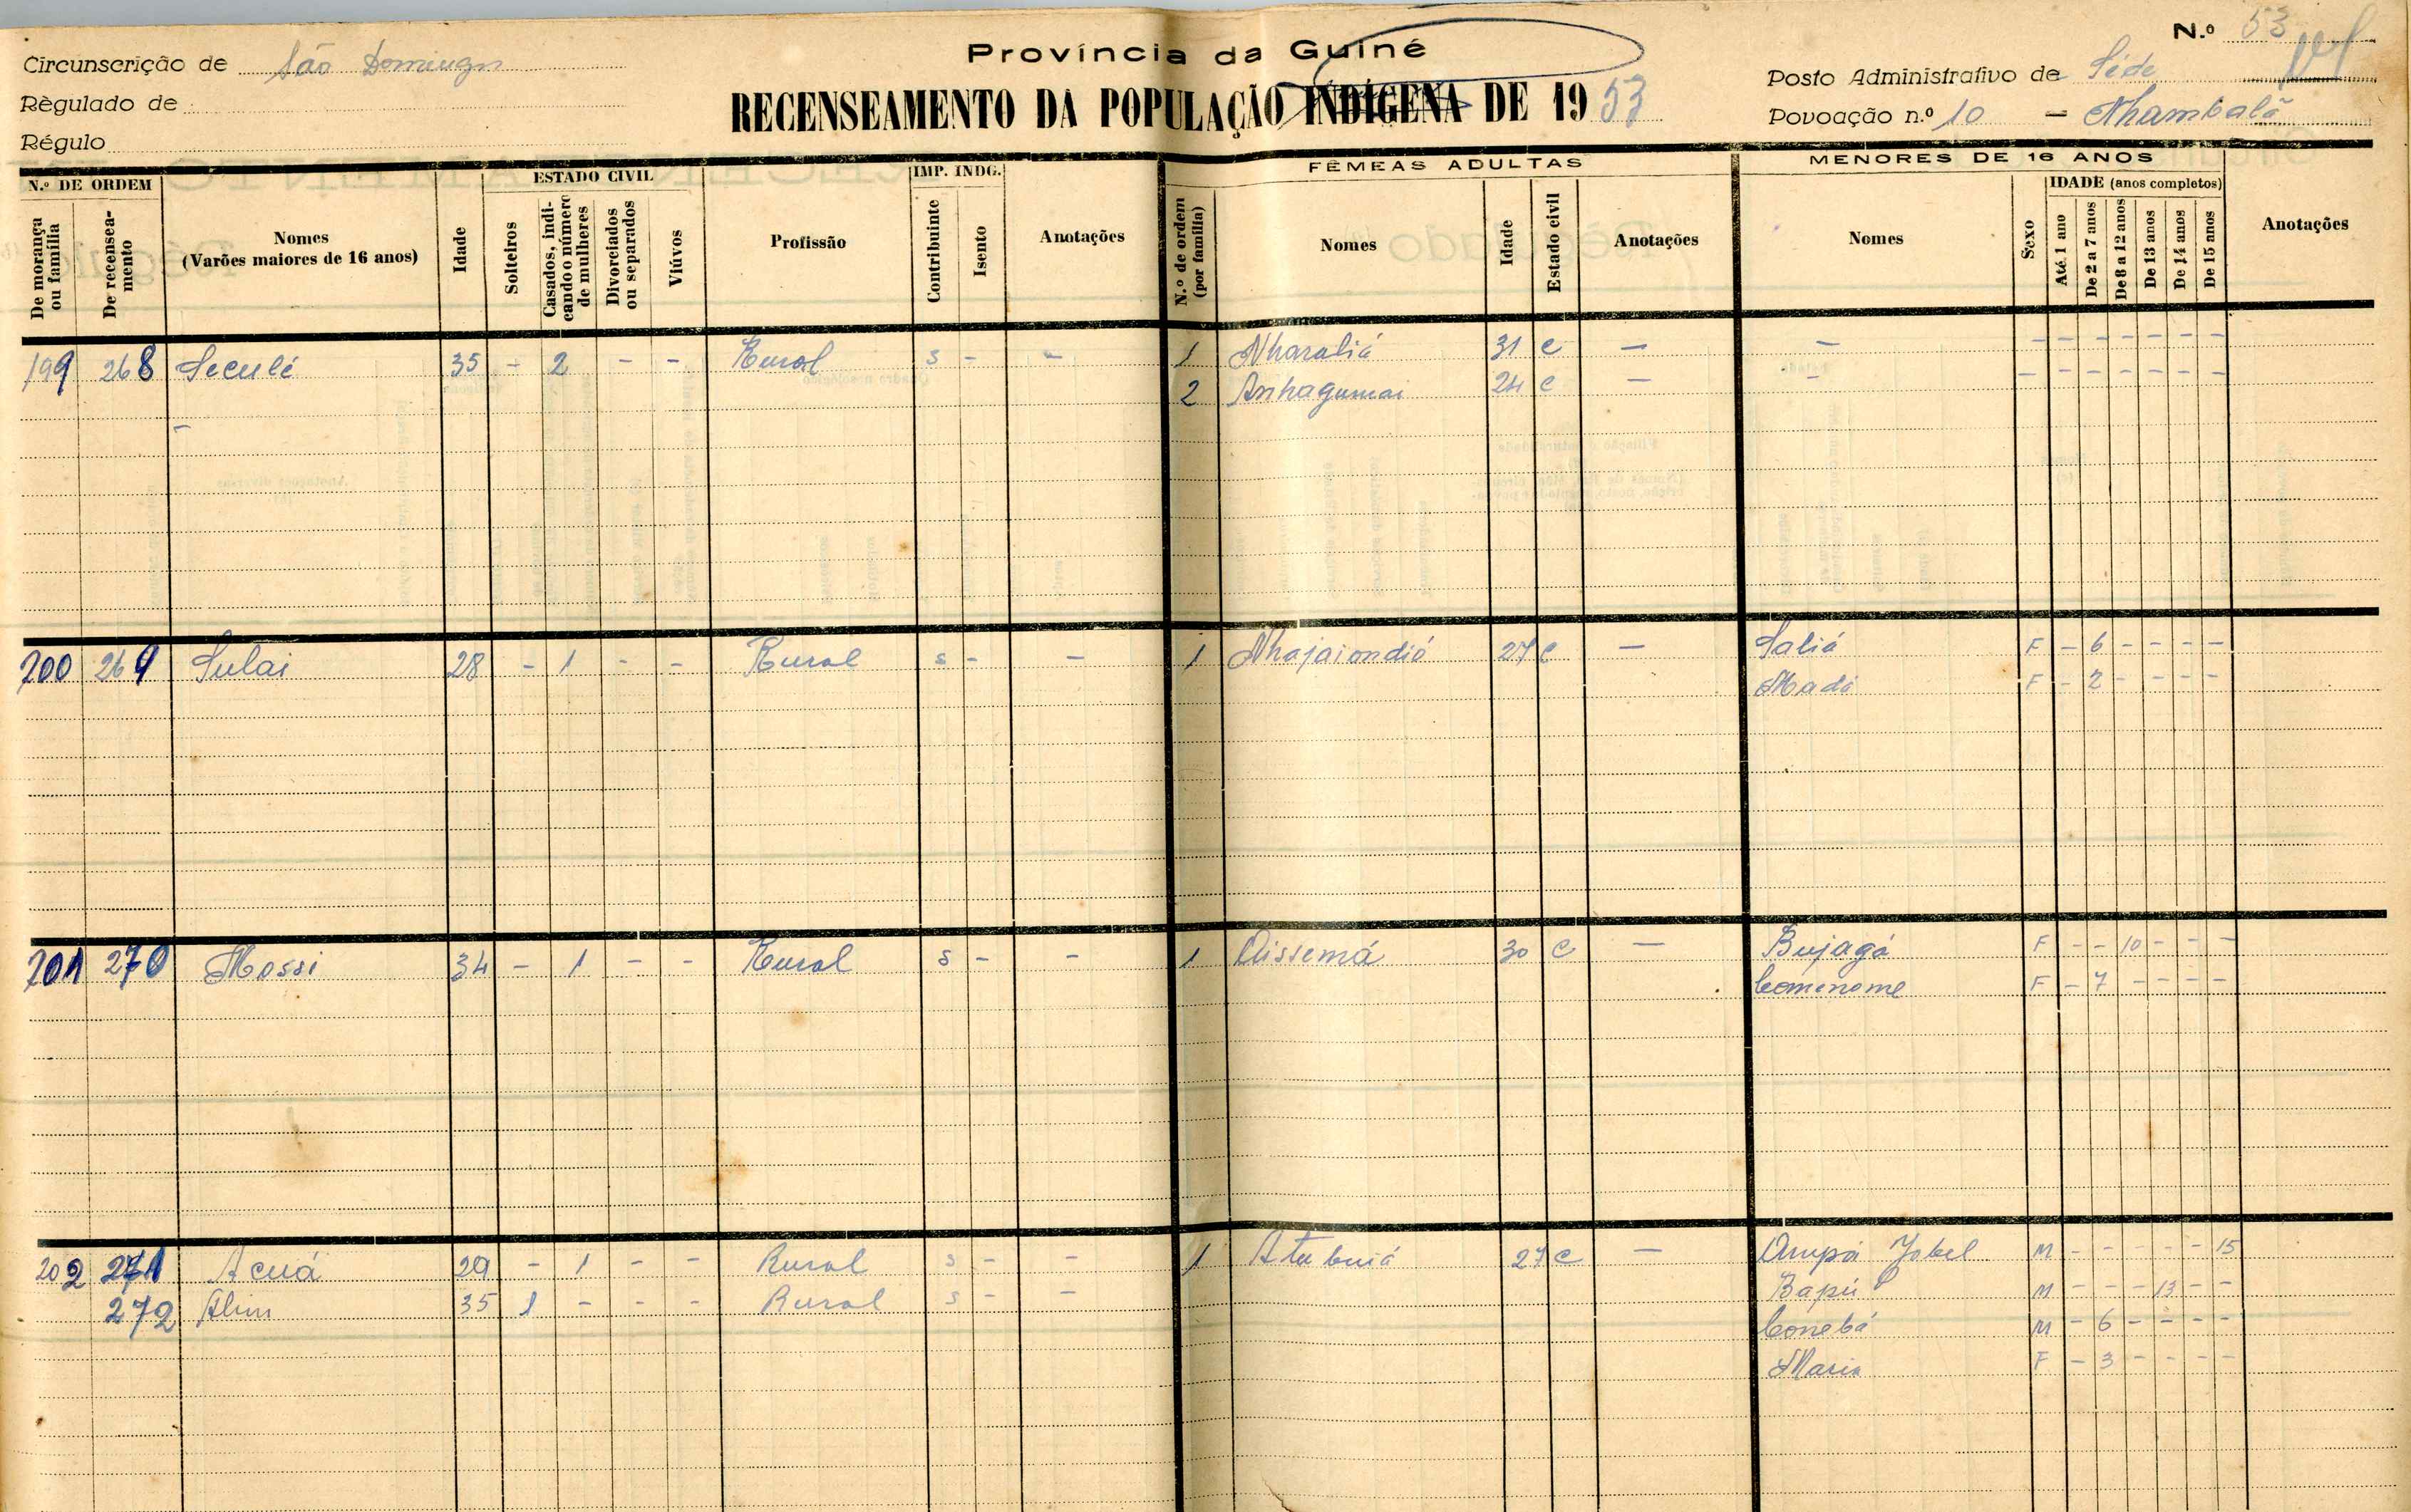 Província da Guiné
N.º 53
Circunscrição de São Domingos
Posto Administrativo de Séde
RECENSEAMENTO DA POPULAÇÃO INDÍGENA DE 1953
Règulado de
Povoação n.º 10 — Nhambalã
Régulo
N.º DE ORDEM
ESTADO CIVIL
IMP. INDG.
FÊMEAS ADULTAS
MENORES DE 16 ANOS
IDADE (anos completos)
De morança ou família
De recensea-mento
Nomes (Varões maiores de 16 anos)
Idade
Solteiros
Casados, indi-cando o número de mulheres
Divorciados ou separados
Viúvos
Profissão
Contribuinte
Isento
Anotações
N.º de ordem (por família)
Nomes
Idade
Estado civil
Anotações
Nomes
Sexo
Até 1 ano
De 2 a 7 anos
De 8 a 12 anos
De 13 anos
De 14 anos
De 15 anos
Anotações
199 268 Seculé 35 - 2 - - Rural s - - 1 Nharaliá 31 C — — - - - - - - -
2 Anhagumai 24 C — — - - - - - - -
200 269 Sulai 28 - 1 - - Rural s - — 1 Nhajaiondió 27 C — Saliá F - 6 - - - -
Madá F - 2 - - - -
201 270 Mossi 34 - 1 - - Rural s - - 1 Aissemá 30 C — Bujagá F - - 10 - - -
Comenome F - 7 - - - -
202 271 Acuá 29 - 1 - - Rural s - - 1 Atabuiá 27 C — Ampá Jobel M - - - - - 15
272 Alim 35 1 - - - Rural s - — Bapú M - - - 13 - -
Conebá M - 6 - - - -
Maria F - 3 - - - -